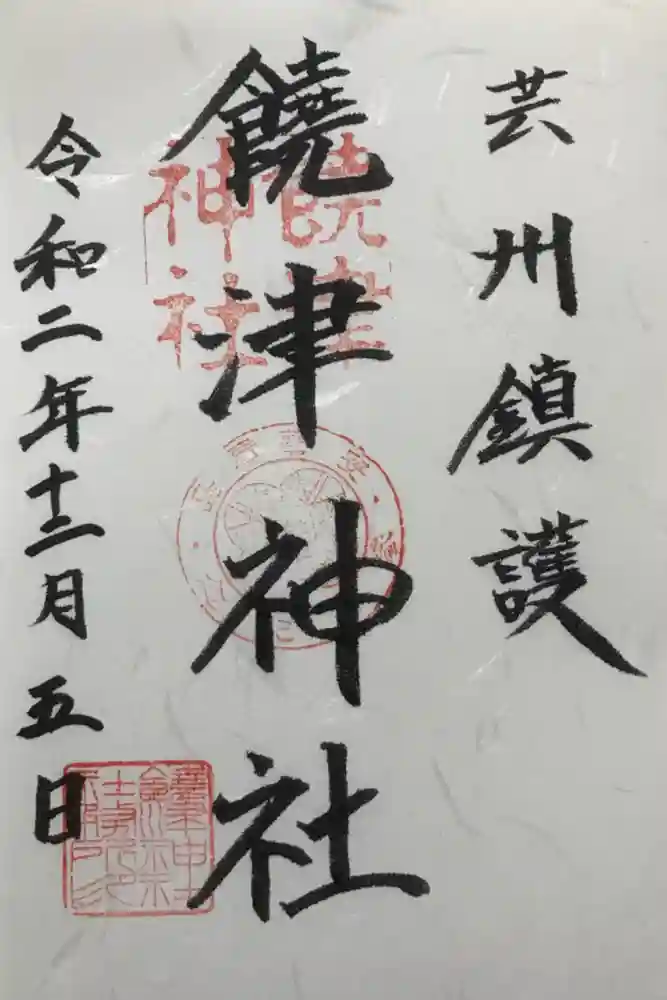 芸州鎮護
饒津神社
饒津
神社
令和二年十二月五日